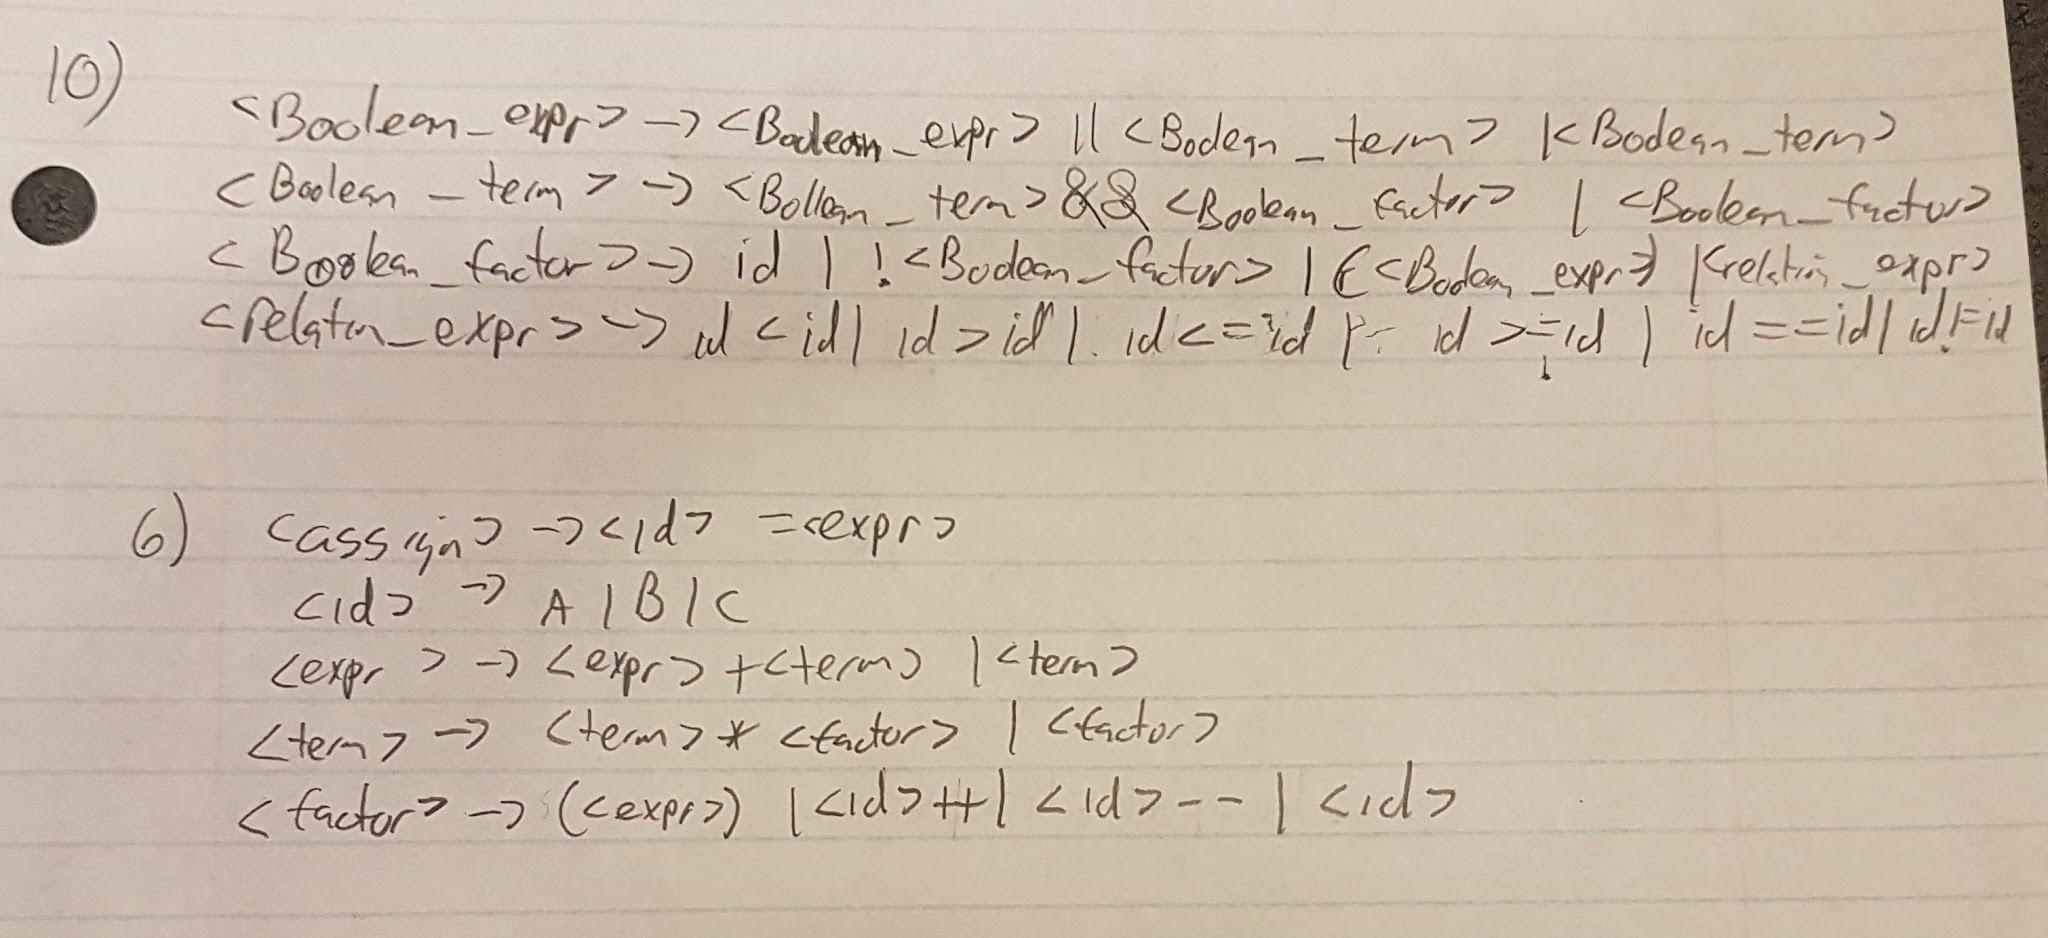 10)
<Boolean_expr> -> <Boolean_expr> || <Boolean_term> |<Boolean_term>
<Boolean_term> -> <Boolean_term> && <Boolean_factor> | <Boolean_factor>
<Boolean_factor> -> id | !<Boolean_factor> | (<Boolean_expr>) |<relation_expr>
<relation_expr> -> id < id | id > id | id <= id | id >= id | id == id | id != id
6) <assign> -> <id> = <expr>
<id> -> A | B | C
<expr> -> <expr> + <term> | <term>
<term> -> <term> * <factor> | <factor>
<factor> -> (<expr>) | <id>++ | <id>-- | <id>